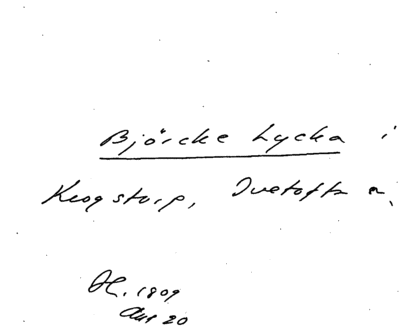 Björcke Lycka i
Krogstorp, Ivetofta
H. 1809
Akt 20